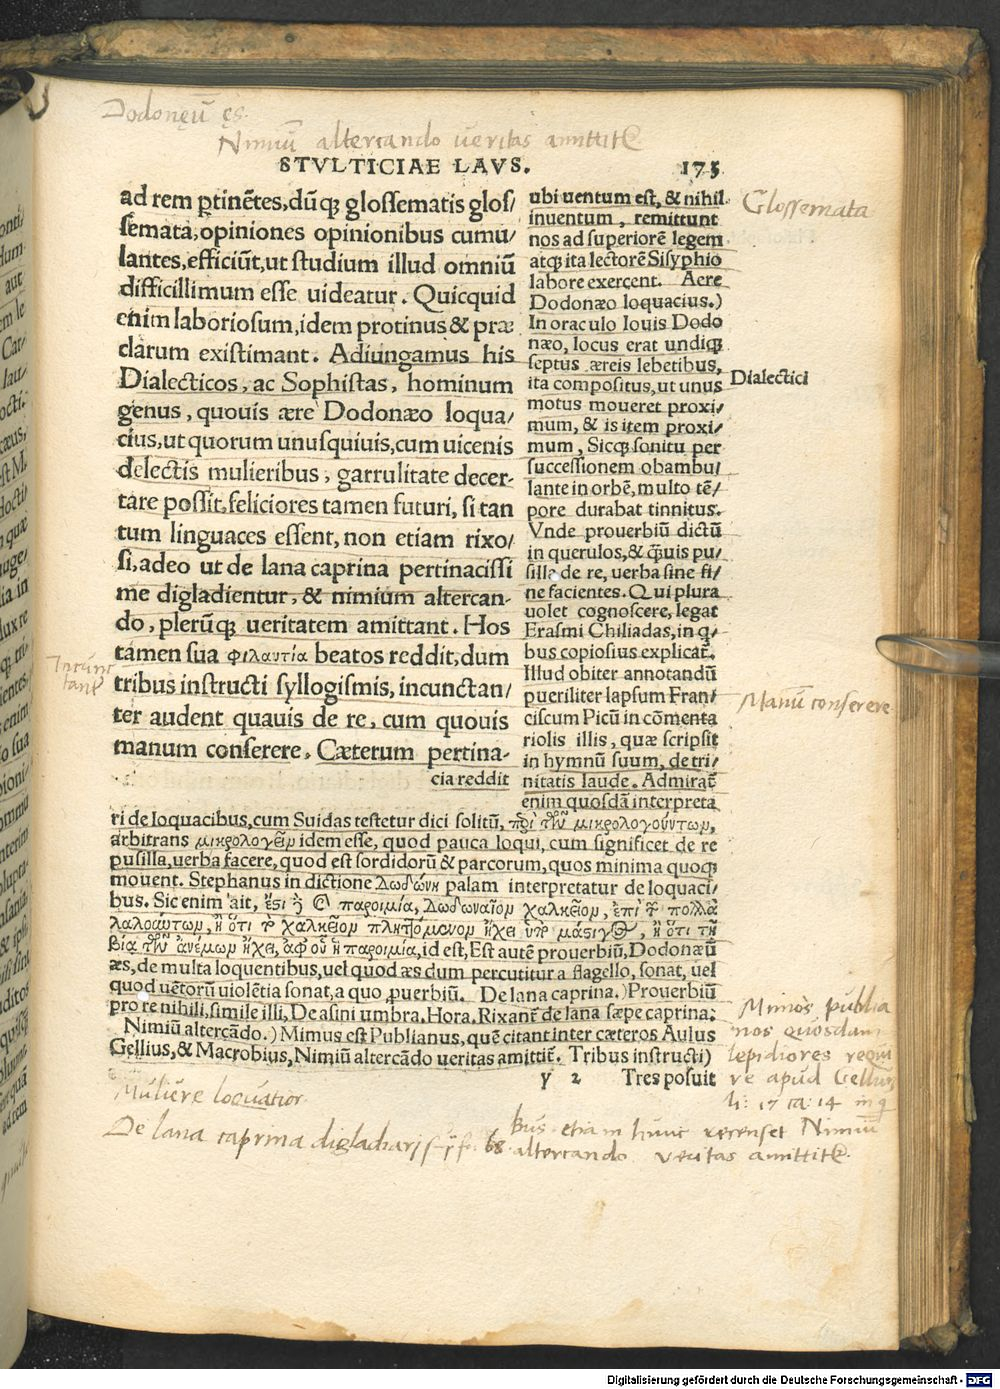 Dodonęū ęs.
Nimiū altercando veritas amittit᷑
STVLTICIAE LAVS. 175
ad rem ꝑtinẽtes, dũqʒ glossematis glos/
semata, opiniones opinionibus cumu/
lantes, efficiũt, ut studium illud omniũ
difficillimum esse uideatur. Quicquid
enim laboriosum, idem protinus & præ
clarum existimant. Adiungamus his
Dialecticos, ac Sophistas, hominum
genus, quouis ære Dodonæo loqua/
cius, ut quorum unusquiuis, cum uicenis
delectis mulieribus, garrulitate decer-
tare possit, feliciores tamen futuri, si tan
tum linguaces essent, non etiam rixo/
si, adeo ut de lana caprina pertinacissi
me digladientur, & nimium altercan-
do, plerũqʒ ueritatem amittant. Hos
tamen sua φιλαυτία beatos reddit, dum
tribus instructi syllogismis, incunctan/
ter audent quauis de re, cum quouis
manum conserere. Cæterum pertina-
cia reddit
Incunc
tant᷑
ubi uentum est, & nihil
inuentum, remittunt
nos ad superiorẽ legem
atqʒ ita lectorẽ Sisyphio
labore exercent. Aere
Dodonæo loquacius.)
In oraculo Iouis Dodo
næo, locus erat undiqʒ
septus æreis lebetibus,
ita compositus, ut unus
motus moueret proxi/
mum, & is item proxi/
mum, Sicqʒ sonitu per
successionem obambu/
lante in orbẽ, multo tẽ/
pore durabat tinnitus.
Vnde prouerbiũ dictũ
in querulos, & q̃uis pu/
silla de re, uerba sine fi/
ne facientes. Qui plura
uolet cognoscere, legat
Erasmi Chiliadas, in q̃/
bus copiosius explicat᷑.
Illud obiter annotandũ
pueriliter lapsum Fran/
ciscum Picũ in cõmenta
riolis illis, quæ scripsit
in hymnũ suum, de tri/
nitatis laude. Admirat᷑
enim quosdã interpreta
Glossemata
Dialectici
Manū conserere
ri de loquacibus, cum Suidas testetur dici solitũ, πε̣ρὶ τῶν μικρολογούντων,
arbitrans μικρολογεῖν idem esse, quod pauca loqui, cum significet de re
pusilla, uerba facere, quod est sordidorũ & parcorum, quos minima quoqʒ
mouent. Stephanus in dictione Δωδώνη palam interpretatur de loquaci/
bus. Sic enim ait, ἔστι ἢ καὶ παροιμία, Δωδωναῖον χαλκεῖον, ἐπὶ τῶν πολλὰ
λαλούντων, ἢ ὅτι τὸ χαλκεῖον πληττόμενον ἤχει ὑπὸ μάστιγος, ἢ ὅτι τῇ
βίᾳ τῶν ἀνέμων ἤχει, ἀφ οὗ ἡ παροιμία, id est, Est autẽ prouerbiũ, Dodonæũ
æs, de multa loquentibus, uel quod æs dum percutitur a flagello, sonat, uel
quod uẽtorũ uiolẽtia sonat, a quo ꝓuerbiũ. De lana caprina.) Prouerbiũ
pro re nihili, simile illi, De asini umbra. Hora. Rixant᷑ de lana sæpe caprina:
Nimiũ altercãdo.) Mimus est Publianus, quẽ citant inter cæteros Aulus
Gellius, & Macrobius, Nimiũ altercãdo ueritas amittit᷑. Tribus instructi)
y 2 Tres posuit
Mimos publia
nos quosdam
lepidiores requi
re apud Gelliū
li: 17 ca: 14 in q̃
bus etiam hunc recenset Nimiū
altercando veritas amittit᷑.
Muliere loquatior
De lana caprina digladiari
Digitalisierung gefördert durch die Deutsche Forschungsgemeinschaft - DFG